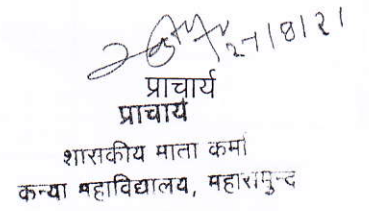 27/8/21
प्राचार्य
प्राचार्य
शासकीय माता कर्मा
कन्या महाविद्यालय, महासमुन्द